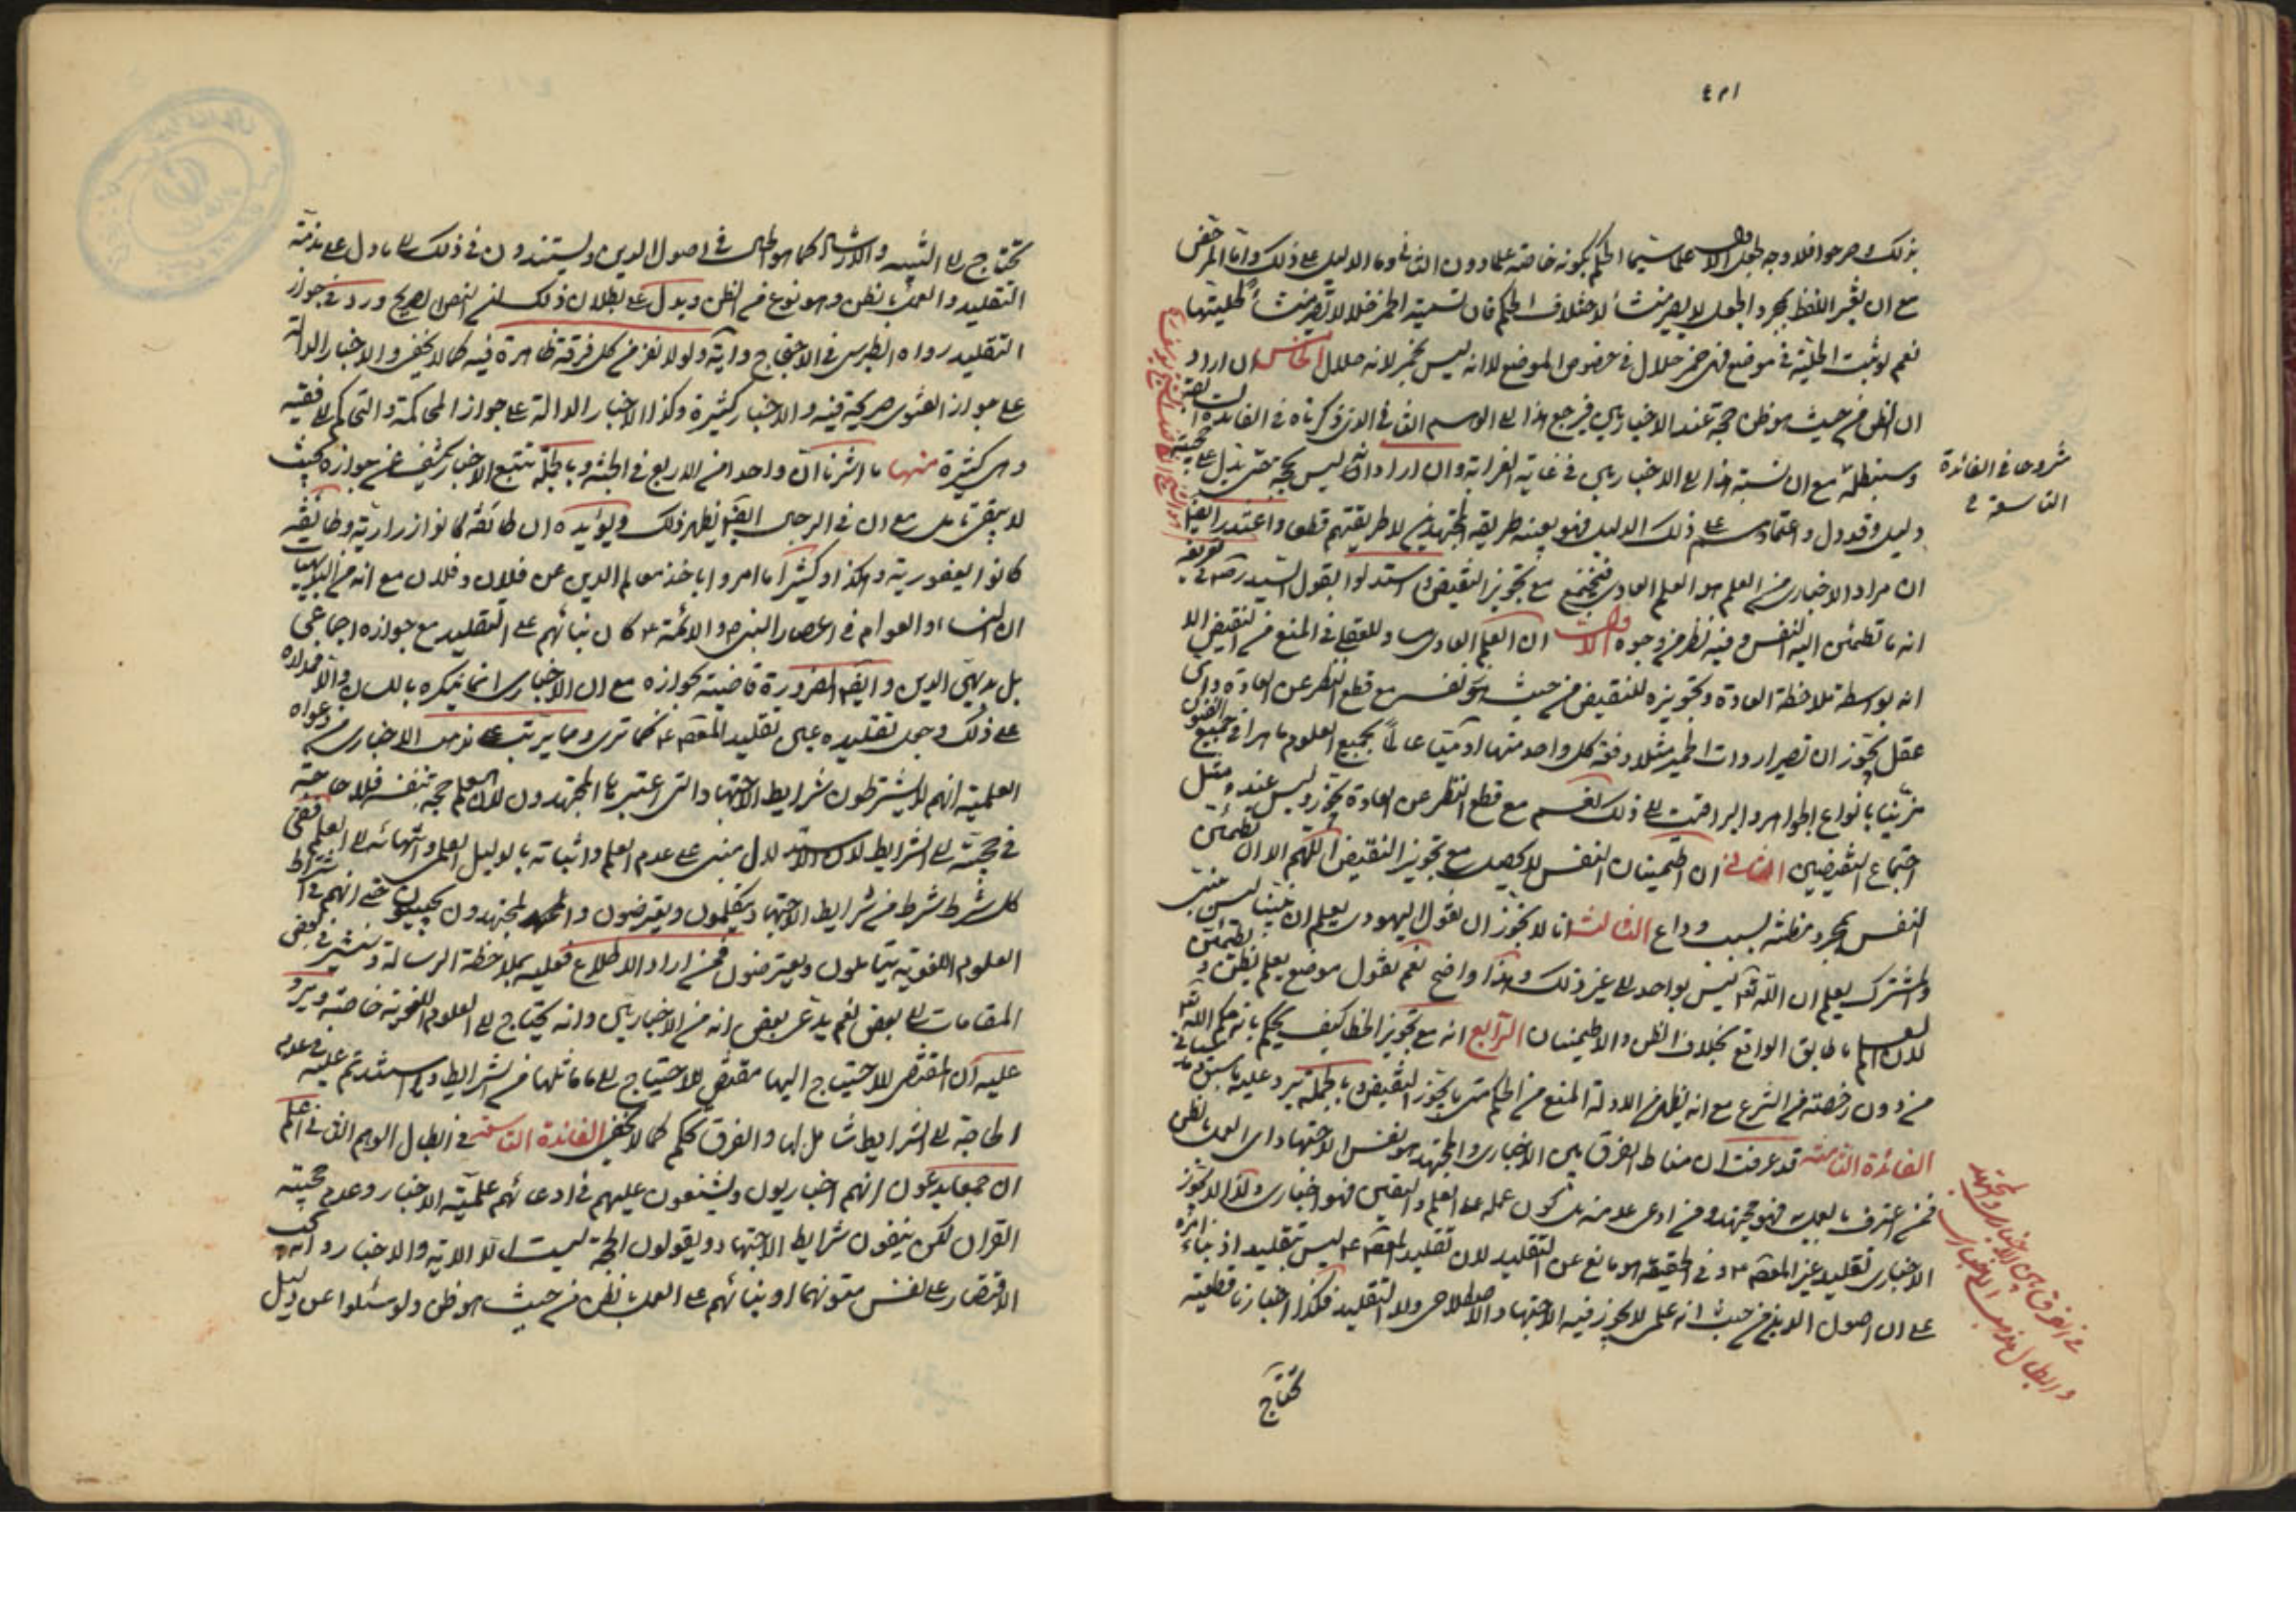 بذلك وصرحوا فلا وجه لجعل الاول علما سيما الحكم بكونه خاصة علما دون الثاني وما الدليل على ذلك وأما المرتضى
مع ان تغير اللفظ بمجرد الجعل لا يصير منشأ لاختلاف الحكم فان تسمية الخمر خلا لا تصير منشأ لحليتها
نعم لو ثبت الحلية في موضع فهي خمر حلال في خصوص الموضع لا انه ليس بخمر لانه حلال الخامس ان اراد
ان الظن من حيث هو ظن حجة عند الاخباريين فيرجع هذا الى الوهم الثاني الذي ذكرناه في الفائدة السابقة
وسنبطله مع ان نسبة هذا الى الاخباريين في غاية الغرابة وان اراد انه ليس بحجة حتى يدل على حجيته
دليل وقد دل واعتمادي على ذلك الدليل فهو بعينه طريقة المجتهدين لا طريقتهم قطعا واعتذر ايضا
ان مراد الاخباري من العلم هو العلم العادي فيجتمع مع تجويز النقيض واستدلوا بقول السيد ره في تعريفه
انه ما تطمئن اليه النفس وفيه نظر من وجوه الاول ان العلم العادي مساو للعقلي في المنع من النقيض الا
انه بواسطة ملاحظة العادة وتجويزه للنقيض من حيث هو نفسه مع قطع النظر عن العادة واي
عقل يجوز ان تصير اروات الحمير مثلا دفعة كل واحد منها ادميا عالما بجميع العلوم ماهرا في جميع الفنون
مزينا بانواع الجواهر والبراقيت الى ذلك نعم مع قطع النظر عن العادة يجوز وليس عنده مثل
اجتماع النقيضين الثاني ان اطمينان النفس لا يحصل مع تجويز النقيض اللهم الا ان تطمئن
النفس بمجرد مظنته لسبب وداع الثالث انا لا نجوز ان نقول اليهودي يعلم ان نبينا ليس بنبي
والمشرك يعلم ان الله تعالى ليس بواحد الى غير ذلك وهذا واضح نعم نقول موضع يعلم يظن ويطمئن
لان العلم ما طابق الواقع بخلاف الظن والاطمينان الرابع انه مع تجويز الخطا كيف يحكم بانه حكم الله تعالى
من دون رخصة من الشرع مع انه يظهر من الادلة المنع من الحكم متى ما يجوز النقيض وبالجملة يرد عليه ما سبق
الفائدة الثامنة قد عرفت ان مناط الفرق بين الاخباري والمجتهد هو نفس الاجتهاد اي العمل بالظن
فمن اعترف بالعمل به فهو مجتهد ومن ادعى عدمه بل كون عمله على العلم واليقين فهو اخباري ولذا لا يجوز
الاخباري تقليد غير المعصوم ع وفي الحقيقة هو مانع عن التقليد لان تقليد المعصوم ع ليس بتقليد اذ بناءه
على ان اصول الدين من حيث انه علمي لا يجوز فيه الاجتهاد الاصطلاحي ولا التقليد فكذا اخبارنا قطعية
تحتاج
مشروحا في الفائدة
التاسعة
في الفرق بين الاخباري والمجتهد
وابطال مذهب الاخباري
تحتاج الى التنبيه والارشاد كما هو الحال في اصول الدين ويستندون في ذلك الى ما دل على مذمة
التقليد والعمل بالظن وهو نوع من الظن ويدل على بطلان ذلك ان النص الصريح ورد في جواز
التقليد رواه الطبرسي في الاحتجاج وآية ولولا نفر من كل فرقة ظاهرة فيه كما لا يخفى والاخبار الدالة
على جواز الفتوى صريحة فيه والاخبار كثيرة وكذا الاخبار الدالة على جواز المحاكمة والتحاكم الى فقيه
وهي كثيرة منها ما اشرنا ان واحدا من الاربع في الجنة وبالجملة تتبع الاخبار يكشف عن جوازه بحيث
لا يبقى تامل مع ان في الرجال ايضا يظهر ذلك ويؤيده ان طائفة كانوا زرارية وطائفة
كانوا يعفورية وهكذا وكثيرا ما امروا باخذ معالم الدين عن فلان وفلان مع انه من البديهيات
ان النساء والعوام في اعصار النبي ص والائمة ع كان بنائهم على التقليد مع جوازه اجماعي
بل بديهي الدين وايضا الضرورة قاضية بجوازه مع ان الاخباري انما ينكره باللسان والا فمداره
على ذلك وجعل تقليده عين تقليد المعصوم ع كما ترى ومما يترتب على مذهب الاخباري من دعواه
العلمية انهم لا يشترطون شرايط الاجتهاد التي اعتبرها المجتهدون لان العلم حجة بنفسه فلا حاجة
في حجيته الى الشرايط لان الاستدلال مبني على عدم العلم واثباته بالدليل العلمي وانتهائه الى العلم ففي
كل شرط شرط من شرايط الاجتهاد يتكلمون ويعترضون والمجتهدون يجيبون حتى انهم في اشتراط
العلوم اللغوية يتاملون ويعترضون فمن اراد الاطلاع فعليه بملاحظة الرسالة ونشير في بعض
المقامات الى بعض نعم يدعى بعض انه من الاخباريين وانه يحتاج الى العلوم اللغوية خاصة ويرد
عليه ان المقتضي للاحتياج اليها مقتض للاحتياج الى ما ماثلها من الشرايط
الحاجة الى الشرايط شامل لها والفرق تحكم كما لا يخفى الفائدة التاسعة في ابطال الوهم الثاني اعلم
ان جمعا يدعون انهم اخباريون ويشنعون عليهم في ادعائهم علمية الاخبار وعدم حجية
القران لكن ينفون شرايط الاجتهاد ويقولون الحجة ليست الا الاية والاخبار وانه يجب
الاقتصار على نفس متونهما وبنائهم على العمل بالظن من حيث هو ظن ولو سئلوا عن دليل